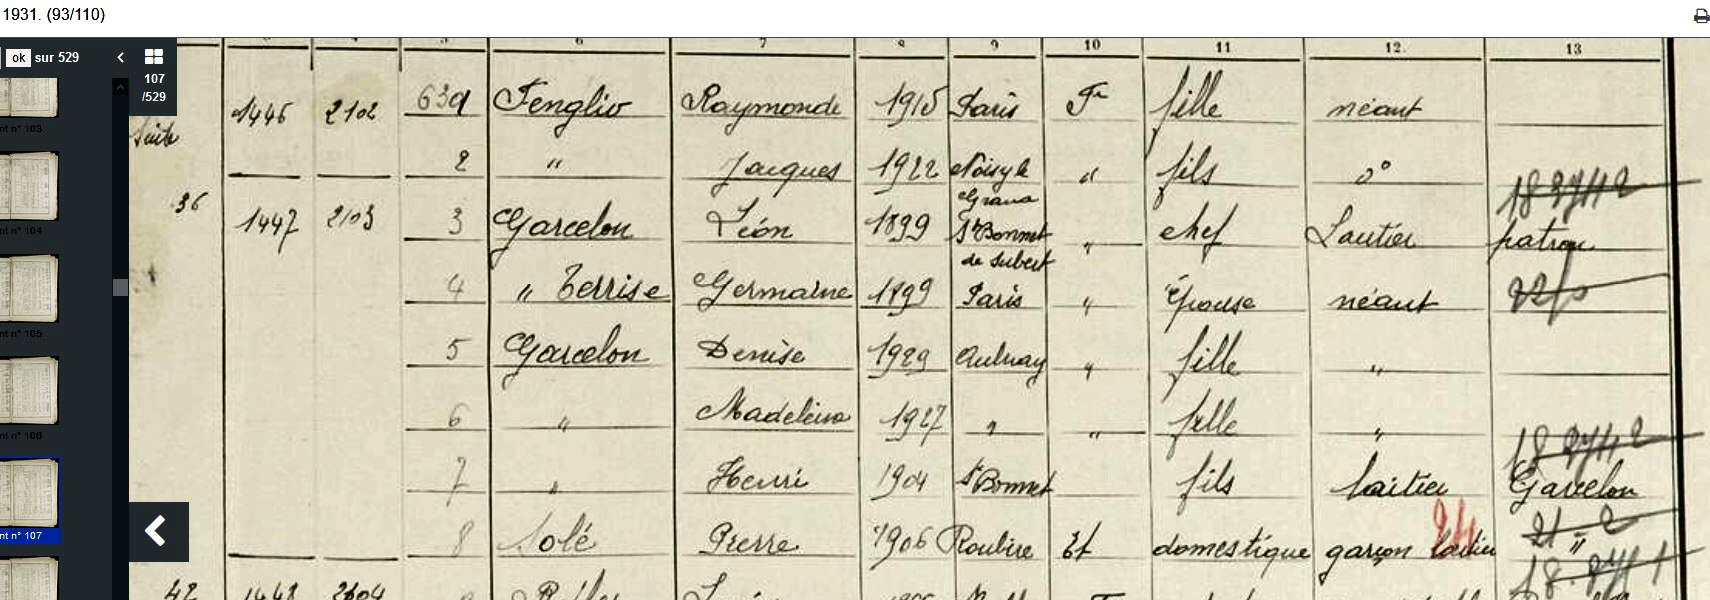 1931. (93/110)
ok sur 529
107
/529
5 6 7 8 9 10 11 12. 13
Suite 1446 2102 639 Fenglio Raymonde 1915 Paris Fse fille néant
2 " Jacques 1922 Noisy le Grand " fils do
1837112
36 1447 2103 3 Garcelon Léon 1899 St Bonnet de Subert " chef Laitier patron
4 " Terrise Germaine 1899 Paris " épouse néant
5 Garcelon Denise 1929 Aulnay " fille "
6 " Madeleine 1927 " " fille "
7 " Henri 1904 St Bonnet fils laitier Garcelon
21-2
8 Solé Pierre 1906 Et domestique garçon laitier "
42 1448 2104
nt n° 103
nt n° 104
nt n° 105
nt n° 106
nt n° 107